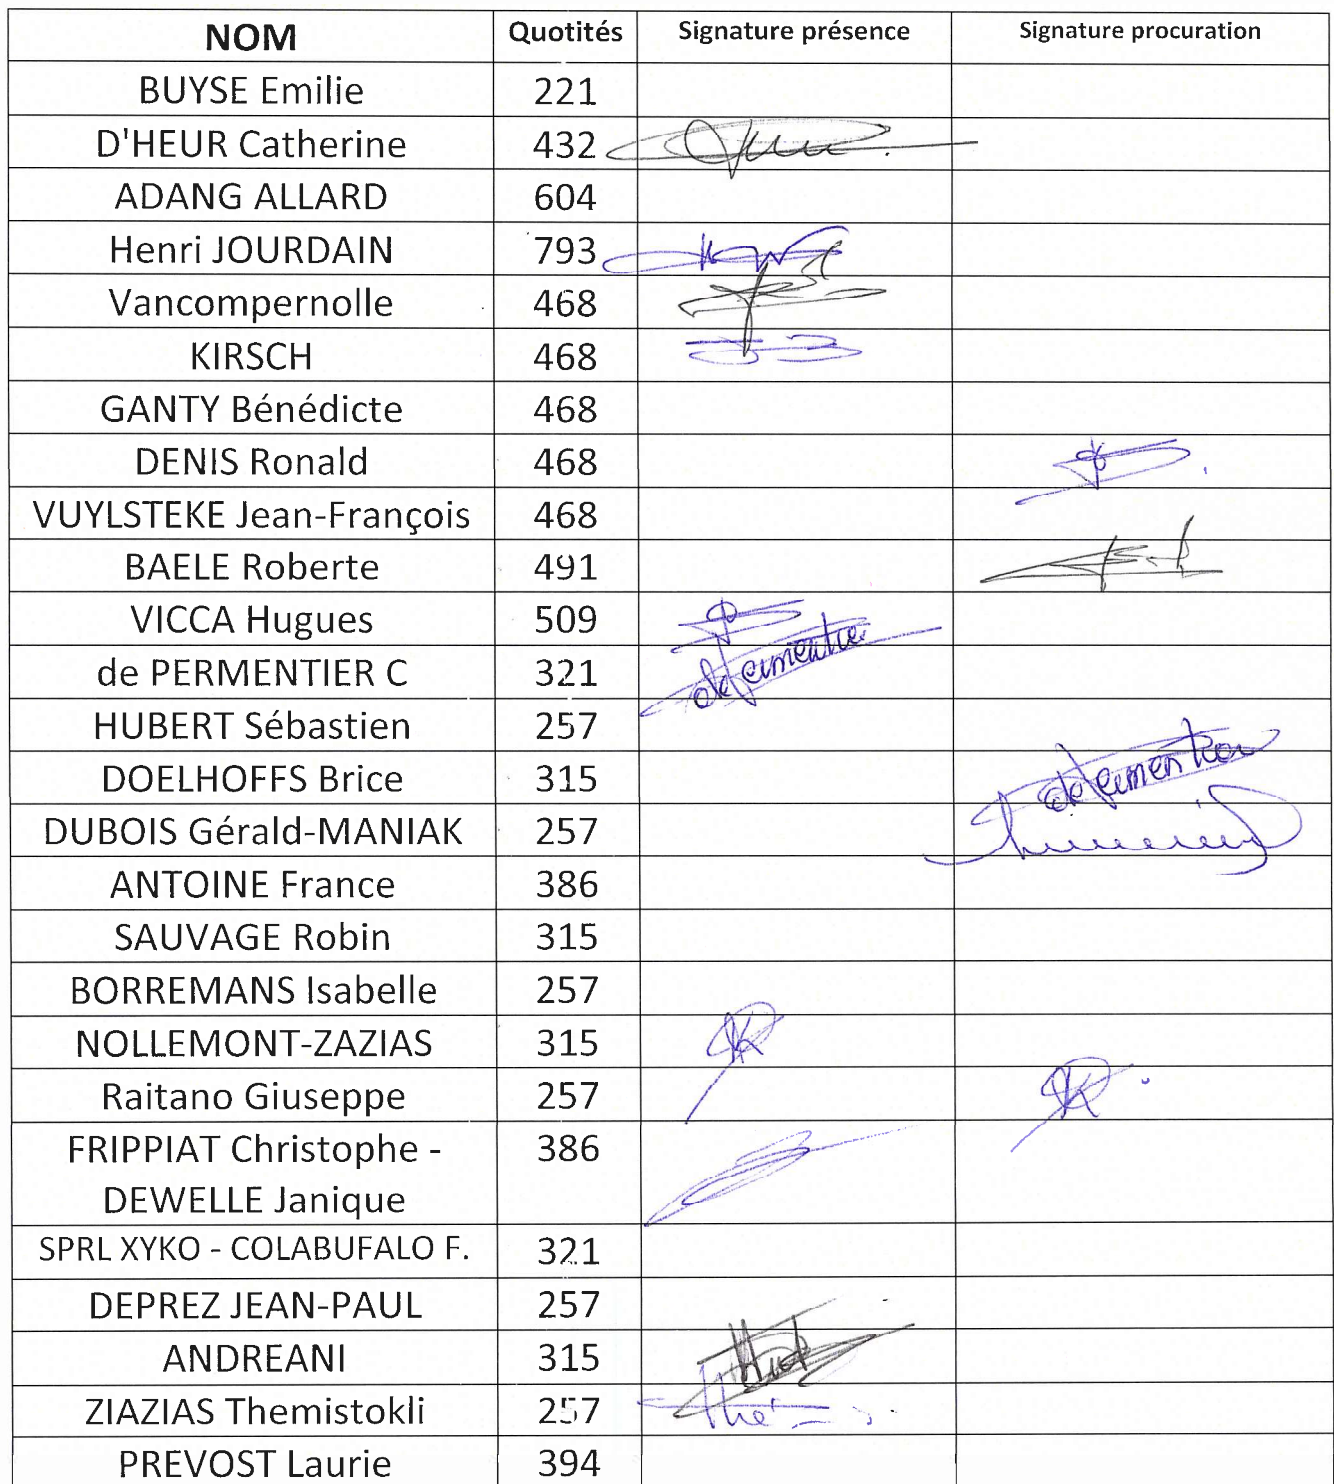 NOM Quotités Signature présence Signature procuration
BUYSE Emilie 221
D'HEUR Catherine 432
ADANG ALLARD 604
Henri JOURDAIN 793
Vancompernolle 468
KIRSCH 468
GANTY Bénédicte 468
DENIS Ronald 468
VUYLSTEKE Jean-François 468
BAELE Roberte 491
VICCA Hugues 509
de PERMENTIER C 321
HUBERT Sébastien 257
DOELHOFFS Brice 315
DUBOIS Gérald-MANIAK 257
ANTOINE France 386
SAUVAGE Robin 315
BORREMANS Isabelle 257
NOLLEMONT-ZAZIAS 315
Raitano Giuseppe 257
FRIPPIAT Christophe - 386
DEWELLE Janique
SPRL XYKO - COLABUFALO F. 321
DEPREZ JEAN-PAUL 257
ANDREANI 315
ZIAZIAS Themistokli 257
PREVOST Laurie 394